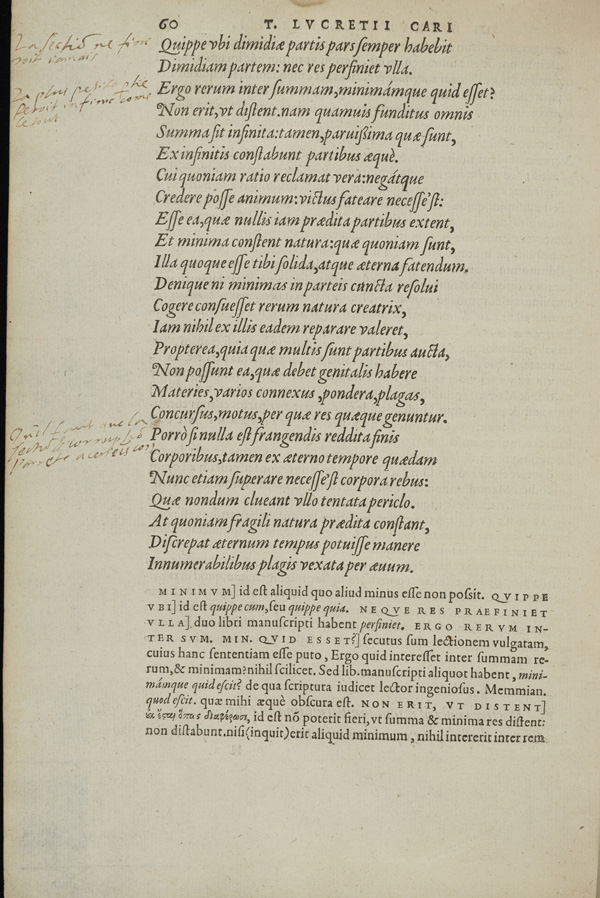 60 T. LVCRETII CARI
La sectiõ ne finiroit iamais
La plus petite
come
Quippe vbi dimidiæ partis pars semper habebit
Dimidiam partem: nec res perfiniet vlla.
Ergo rerum inter summam, minimámque quid esset?
Non erit, vt distent. nam quamuis funditus omnis
Summa sit infinita: tamen, paruissima quæ sunt,
Ex infinitis constabunt partibus æquè.
Cui quoniam ratio reclamat vera: negátque
Credere posse animum: victus fateare necesse'st:
Esse ea, quæ nullis iam prædita partibus extent,
Et minima constent natura: quæ quoniam sunt,
Illa quoque esse tibi solida, atque æterna fatendum.
Denique ni minimas in parteis cuncta resolui
Cogere consuesset rerum natura creatrix,
Iam nihil ex illis eadem reparare valeret,
Propterea, quia quæ multis sunt partibus aucta,
Non possunt ea, quæ debet genitalis habere
Materies, varios connexus, pondera, plagas,
Concursus, motus, per quæ res quæque genuntur.
Qu'il faut que la
Porrò si nulla est frangendis reddita finis
Corporibus, tamen ex æterno tempore quædam
Nunc etiam superare necesse'st corpora rebus:
Quæ nondum clueant vllo tentata periclo.
At quoniam fragili natura prædita constant,
Discrepat æternum tempus potuisse manere
Innumerabilibus plagis vexata per æuum.
MINIMVM] id est aliquid quo aliud minus esse non possit. QVIPPE
VBI] id est quippe cum, seu quippe quia. NEQVE RES PRAEFINIET
VLLA]. duo libri manuscripti habent perfiniet. ERGO RERVM IN-
TER SVM. MIN. QVID ESSET?] secutus sum lectionem vulgatam,
cuius hanc sententiam esse puto, Ergo quid interesset inter summam re-
rum, & minimam? nihil scilicet. Sed lib. manuscripti aliquot habent, mini-
mámque quid escit? de qua scriptura iudicet lector ingeniosus. Memmian.
quod escit. quæ mihi æquè obscura est. NON ERIT, VT DISTENT]
id est nõ poterit fieri, vt summa & minima res distent:
non distabunt. nisi (inquit) erit aliquid minimum, nihil intererit inter rem